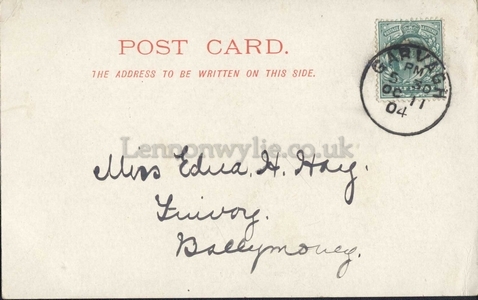 POST CARD.
THE ADDRESS TO BE WRITTEN ON THIS SIDE.
GARVAGH
5 PM
OC 11
04
Lennonwylie.co.uk
Miss Edna. H. Hay.
Finvoy.
Ballymoney.